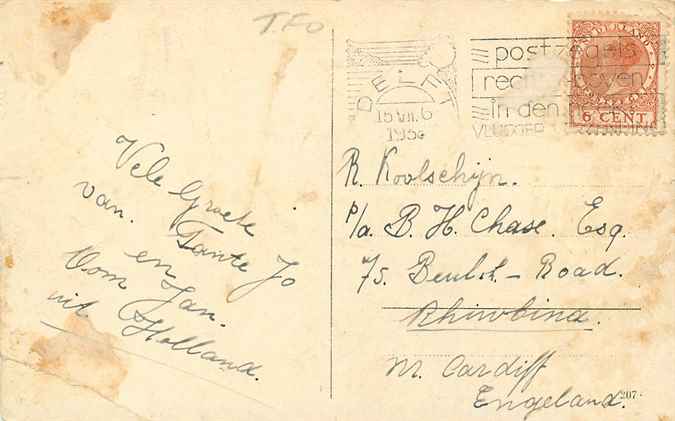 T.FO
DELFT
15 VII. 6
193
postzegels
rechtsboven
in den
NEDERLAND
6 CENT
Vele Groete
van. Tante Jo
en
Oom Jan.
uit Holland.
R. Koolschijn.
p/a. B. H. Chase. Esq.
75. Beulah - Road.
Rhiwbina.
nr. Cardiff
Engeland.
207